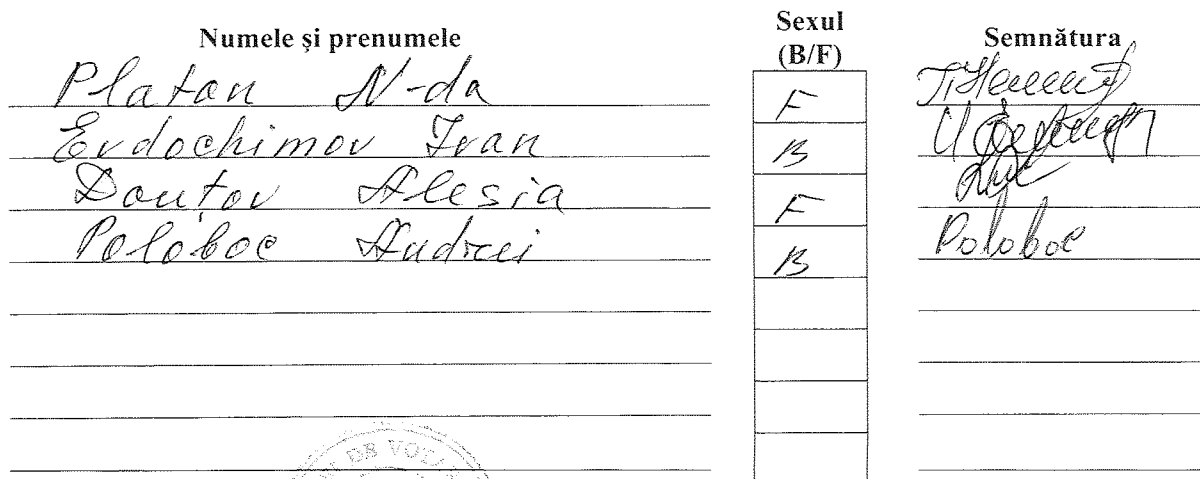 Numele şi prenumele Sexul (B/F) Semnătura
Platon N-da F
Evdochimov Ivan B
Doutov Alesia F
Poloboc Andrei B Poloboc
DE VOTA